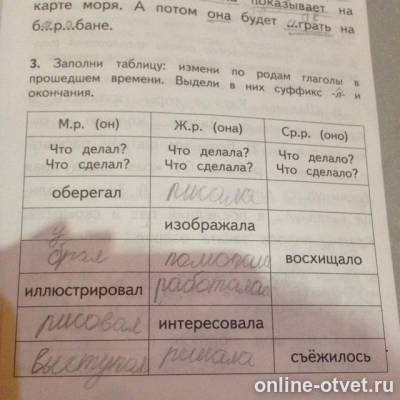 показывает на
карте моря. А потом она будет играть на
б..р..бане.
3. Заполни таблицу: измени по родам глаголы в
прошедшем времени. Выдели в них суффикс -л- и
окончания.
М.р. (он) Ж.р. (она) Ср.р. (оно)
Что делал? Что делала? Что делало?
Что сделал? Что сделала? Что сделало?
оберегал писала
у изображала
брал помогала восхищало
иллюстрировал работала
рисовал интересовала
выступал решала съёжилось
online-otvet.ru